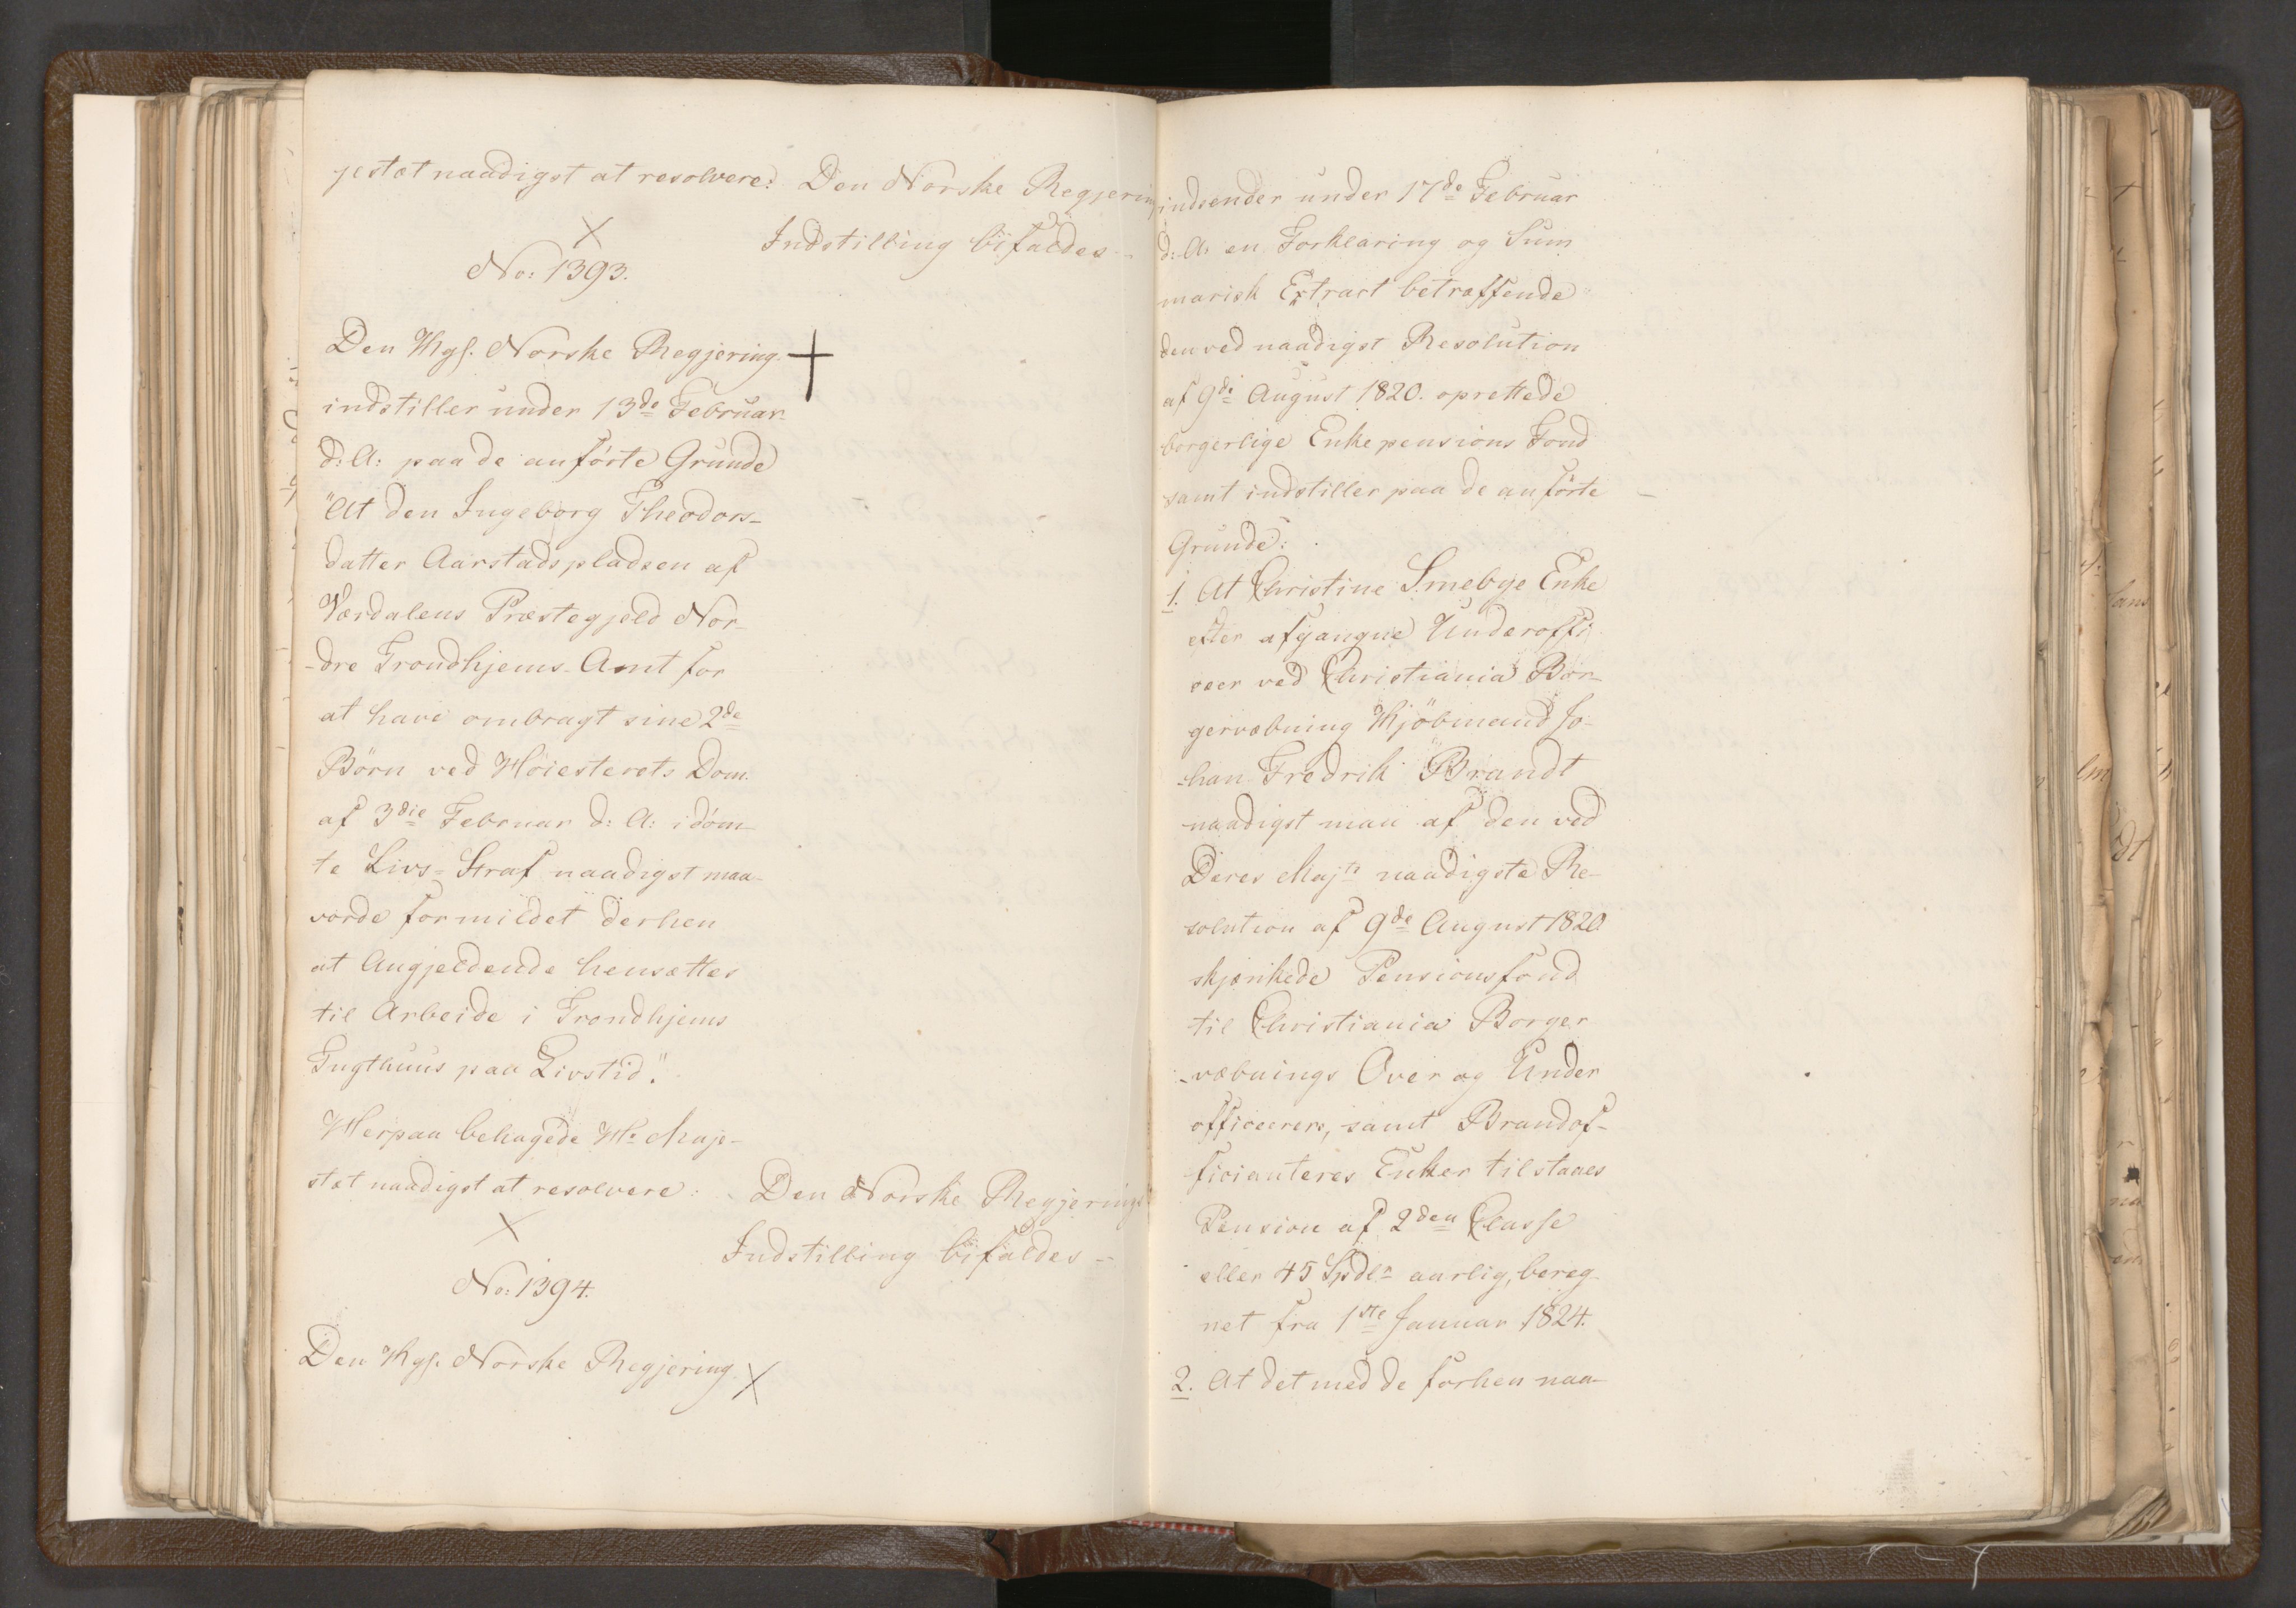 jestæt naadigst at resolvere: Den Norske Regjerings
Indstilling bifaldes —
No: 1393.
Den Kgl. Norske Regjering
indstiller under 13de Februar
d: A: paa de anförte Grunde
"At den Ingeborg Theodors-
datter Aarstadspladsen af
Værdalens Præstegjeld Nor-
-dre Trondhjems Amt for
at have ombragt sine 2de
Börn ved Höiesterets Dom
af 3die Februar d: A: idöm-
te Livs-Straf naadigst maa
vorde formildet derhen
at Angjeldende hensættes
til Arbeide i Trondhjems
Tugthuus paa Livstid."
Herpaa behagede H: Maje-
stæt naadigst at resolvere: Den Norske Regjerings
Indstilling bifaldes —
No: 1394.
Den Kgl. Norske Regjering
indsender under 17de Februar
d: A: en Forklaring og Sum
marisk Extract betræffende
den ved naadigst Resolution
af 9de August 1820. oprettede
borgerlige Enkepensions Fond
samt indstiller paa de anförte
Grunde:
1. At Christine Smebye Enke
efter afgangne Underoffi-
ceer ved Christiania Bor-
gervæbning Kjöbmand Jo-
-han Fredrik Brandt
naadigst maa af den ved
Deres Majts naadigste Re-
solution af 9de August 1820
skjænkede Pensionsfond
til Christiania Borger
-væbnings Over og Under
officerers, samt Brandof-
ficianteres Enker tilstaaes
Pension af 2den Classe
eller 45 Spdlr aarlig, bereg-
net fra 1ste Januar 1824.
2. At det med de forhen naa-